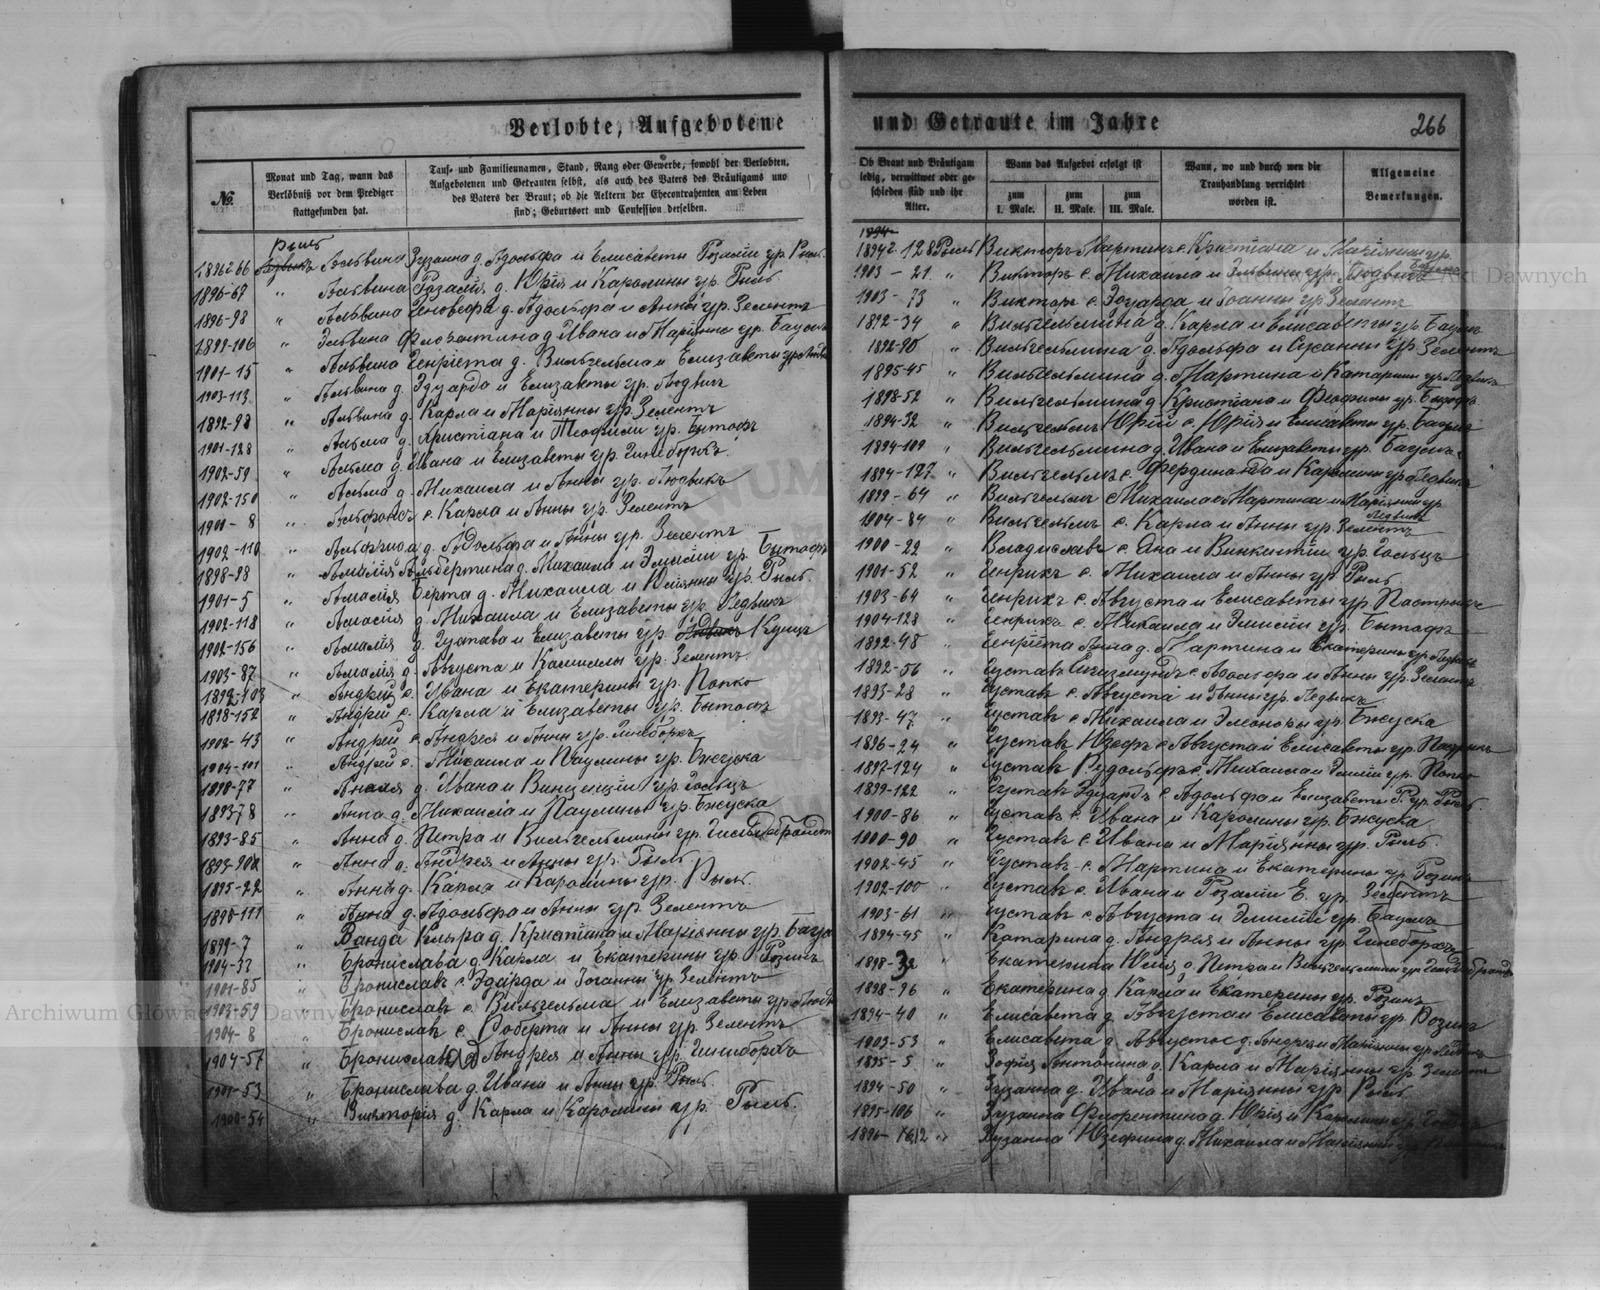 Verlobte, Aufgebotene
№
Monat und Tag, wann das Verlöbniß vor dem Prediger stattgefunden hat.
Tauf- und Familiennamen, Stand, Rang oder Gewerbe, sowohl der Verlobten, Aufgebotenen und Getrauten selbst, als auch des Vaters des Bräutigams und des Vaters der Braut; ob die Aeltern der Ehecontrahenten am Leben sind; Geburtsort und Confession derselben.
Рыль
1896-66 Альвина Зузанна д. Адольфа и Елисаветы Розалiи ур. Рыль
1896-67 " Альвина Розалiя д. Юрiя и Каролины ур. Рыль
1896-98 " Альвина Геновефа д. Адольфа и Анны ур. Зелентъ
1899-106 " Эльвина Флорантина д. Ивана и Марiянны ур. Баусъ
1901-15 " Альвина Генрiета д. Вильгельма и Елизаветы ур.
1903-113 " Альвина д. Эдуарда и Елизаветы ур. Людвигъ
1892-98 " Альвина д. Карла и Марiянны ур. Зелентъ
1901-128 " Альма д. Христiана и Теофили ур. Бытофъ
1902-59 " Альма д. Ивана и Елизаветы ур. Гинеборхъ
1902-150 " Альма д. Михаила и Анны ур. Людвикъ
1901-8 " Альфонсъ с. Карла и Анны ур. Зелентъ
1902-110 " д. Адольфа и Анны ур. Зелентъ
1898-98 " Амалiя Альбертина д. Михаила и Эмилiи ур. Бытофъ
1901-5 " Амалiя Берта д. Михаила и Юлiянны ур. Рыль.
1902-118 " Амалiя д. Михаила и Елизаветы ур. Ледвикъ
1902-156 " Амалiя д. Густава и Елизаветы ур. Кунцъ
1903-87 " Амалiя д. Августа и Камиллы ур. Зелентъ.
1892-103 " Андрей с. Ивана и Екатерины ур. Попко
1898-152 " Андрей с. Карла и Елизаветы ур. Бытофъ
1902-43 " Андрей с. Андрея и Анны ур. Гинеборхъ
1904-101 " Андрей с. Михаила и Паулины ур. Бжуска
1898-77 " д. Ивана и Винценцiи ур. Гольцъ
1893-78 " Анна д. Михаила и Паулины ур. Бжуска
1893-85 " Анна д. Петра и Вильгельмины ур. Гильдебрандтъ
" Анна д. Андрея и Анны ур. Рыль
1895-22 " Анна д. Карла и Каролины ур. Рыль.
1895-111 " Анна д. Адольфа и Анны ур. Зелентъ
1899-7 " Ванда Клара д. Кристiана и Марiянны ур.
1904-33 " Бронислава д. Карла и Екатерины ур. Розинъ
1901-85 " Брониславъ с. Эдарда и Iоганны ур. Зелентъ
1903-59 " Брониславъ с. Вильгельма и Елизаветы ур.
1904-8 " Брониславъ с. Роберта и Анны ур. Зелентъ
1904-57 " Бронислава д. Андрея и Анны ур. Гинеборхъ
1901-53 " Бронислава д. Ивана и Анны ур. Рыль.
1900-54 " Викторiя д. Карла и Каролины ур. Рыль.
und Getraute im Jahre
266
Ob Braut und Bräutigam ledig, verwittwet oder geschieden sind und ihr Alter.
Wann das Aufgebot erfolgt ist
zum I. Male.
zum II. Male.
zum III. Male.
Wann, wo und durch wen die Trauhandlung verrichtet worden ist.
Allgemeine Bemerkungen.
1894-128 Рыль Викторъ Мартинъ с. Кристiана и Марiянны ур.
1903-21 " Викторъ с. Михаила и Эльвины ур. Людвигъ
1903-73 " Викторъ с. Эдуарда и Iоанны ур. Зелентъ
1892-34 " Вильгельмина д. Карла и Елисаветы ур. Баусъ
" Вильгельмина д. Адольфа и Сузанны ур. Зелентъ
1895-45 " Вильгельмина д. Мартина и Катарины ур. Ледвигъ
1898-52 " Вильгельмина д. Кристiана и Феофили ур. Бытофъ
1894-32 " Вильгельмъ Юрiй с. Юрiя и Елисаветы ур. Баусъ
1894-109 " Вильгельмина д. Ивана и Елизаветы ур. Баусъ
1894-127 " Вильгельмъ с. Фердинанда и Каролины ур. Ледвигъ
1899-64 " Вильгельмъ с. Мартина и Марiянны ур. Ледвикъ
1904-84 " Вильгельмъ с. Карла и Анны ур. Зелентъ
1900-22 " Владиславъ с. Яна и Винкентiи ур. Гольцъ
1901-52 " Генрихъ с. Михаила и Анны ур. Рыль
1903-64 " Генрихъ с. Августа и Елисаветы ур.
1904-128 " Генрихъ с. Михаила и Эмилiи ур. Бытофъ
1892-48 " Генрiета Анна д. Мартина и Екатерины ур. Людвигъ
1892-56 " Густавъ Сигизмундъ с. Адольфа и Анны ур. Зелентъ
1893-28 " Густавъ с. Августа и Анны ур. Ледвикъ
1893-47 " Густавъ с. Михаила и Элеоноры ур. Бжуска
1896-24 " Густавъ Юзефъ с. Августа и Елисаветы ур.
1897-124 " Густавъ Рудольфъ с. Михаила и Эмилiи ур. Попко
1899-122 " Густавъ Эдуардъ с. Адольфа и Елизаветы Р. ур. Рыль.
1900-86 " Густавъ с. Ивана и Каролины ур. Бжуска
1900-90 " Густавъ с. Ивана и Марiянны ур. Рыль.
1902-45 " Густавъ с. Мартина и Екатерины ур. Розинъ
1902-100 " Густавъ с. Ивана и Розалiи Е. ур.
1903-61 " Густавъ с. Августа и Эмилiи ур. Баусъ
1894-45 " Катарина д. Андрея и Анны ур. Гинеборхъ
1898-32 " Екатерина Юлiя д. Петра и Вильгельмины ур. Гильдебрандтъ
1898-96 " Екатерина д. Карла и Екатерины ур. Розинъ
1894-40 " Елисавета д. Августа и Елисаветы ур. Розинъ
1903-53 " Елисавета д. Андрея и Марiянны ур.
1895-5 " Зофiя Антонина д. Карла и Марiянны ур. Зелентъ
1894-50 " Зузанна д. Ивана и Марiянны ур. Рыль
1895-106 " Зузанна Флорентина д. Юрiя и Каролины ур.
1896-162 " Зузанна Юзефина д. Михаила и Марiянны ур.
Archiwum Główne Akt Dawnych
Archiwum Główne Akt Dawnych